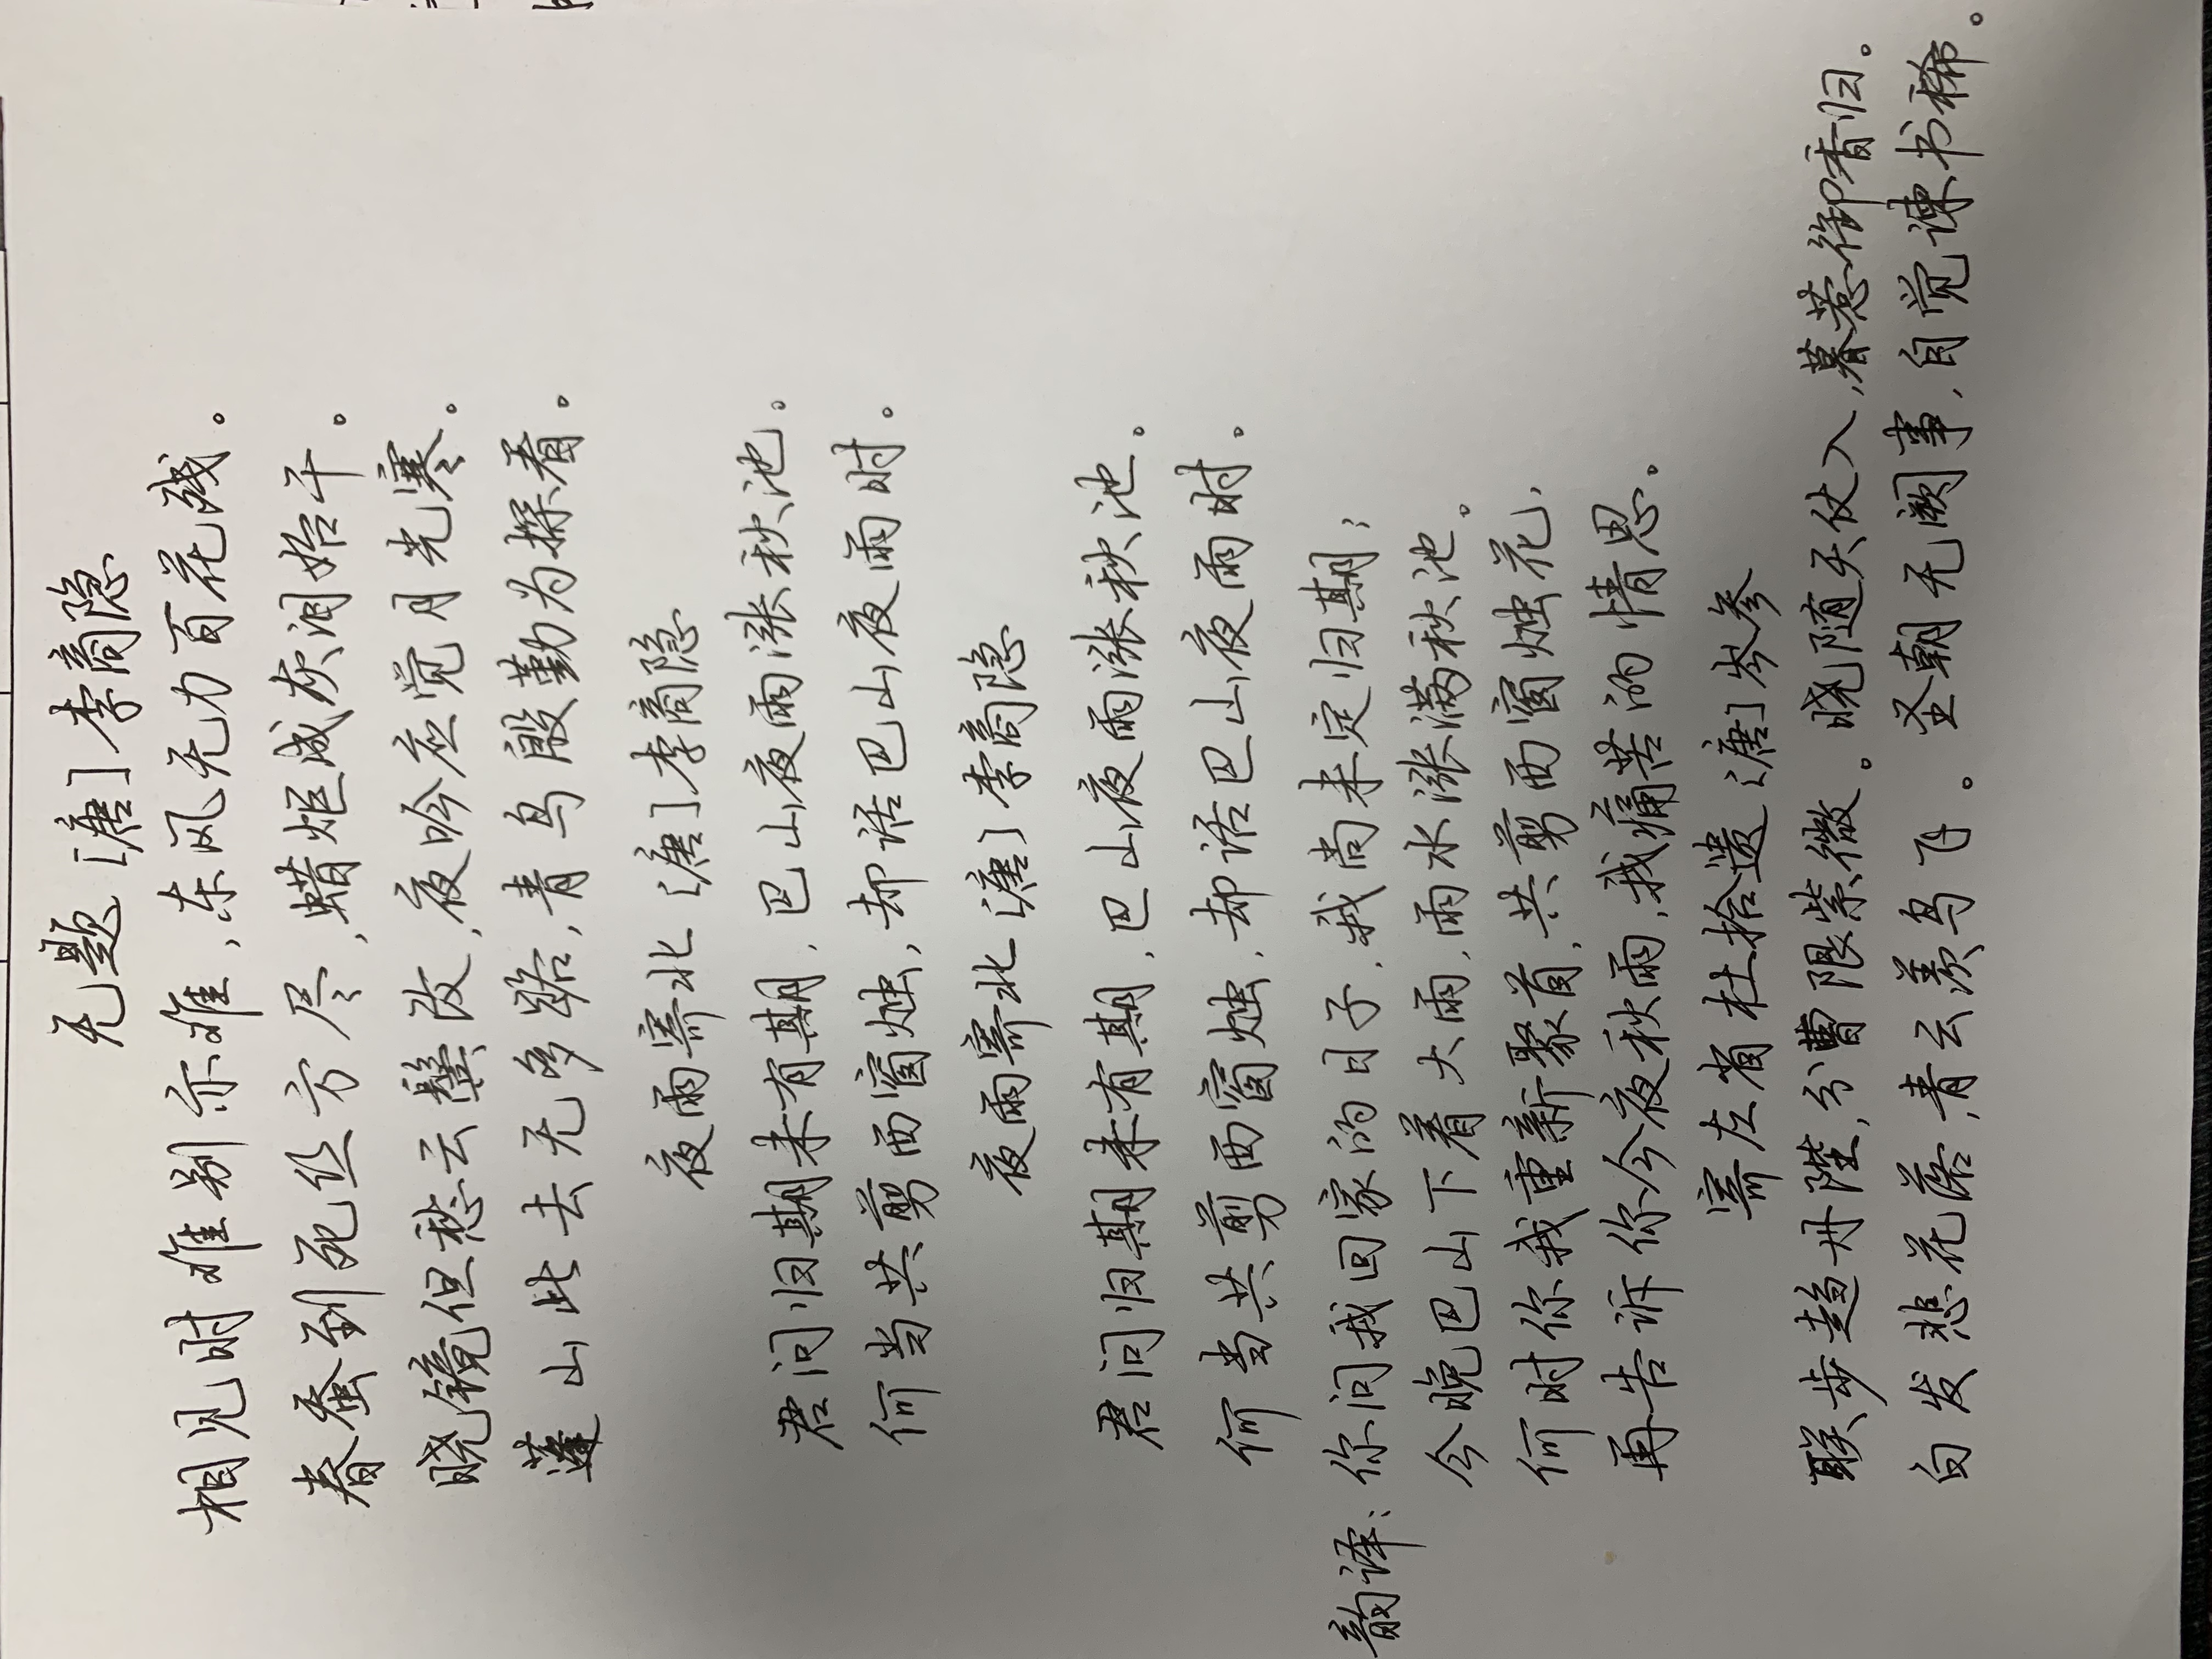 无题 [唐] 李商隐
相见时难别亦难,东风无力百花残。
春蚕到死丝方尽,蜡炬成灰泪始干。
晓镜但愁云鬓改,夜吟应觉月光寒。
蓬山此去无多路,青鸟殷勤为探看。
夜雨寄北 [唐] 李商隐
君问归期未有期,巴山夜雨涨秋池。
何当共剪西窗烛,却话巴山夜雨时。
夜雨寄北 [唐] 李商隐
君问归期未有期,巴山夜雨涨秋池。
何当共剪西窗烛,却话巴山夜雨时。
韵译:你问我回家的日子,我尚未定归期;
今晚巴山下着大雨,雨水涨满秋池。
何时你我重新聚首,共剪西窗烛花,
再告诉你今夜秋雨,我痛苦的情思。
寄左省杜拾遗 [唐] 岑参
联步趋丹陛,分曹限紫微。晓随天仗入,暮惹御香归。
白发悲花落,青云羡鸟飞。圣朝无阙事,自觉谏书稀。